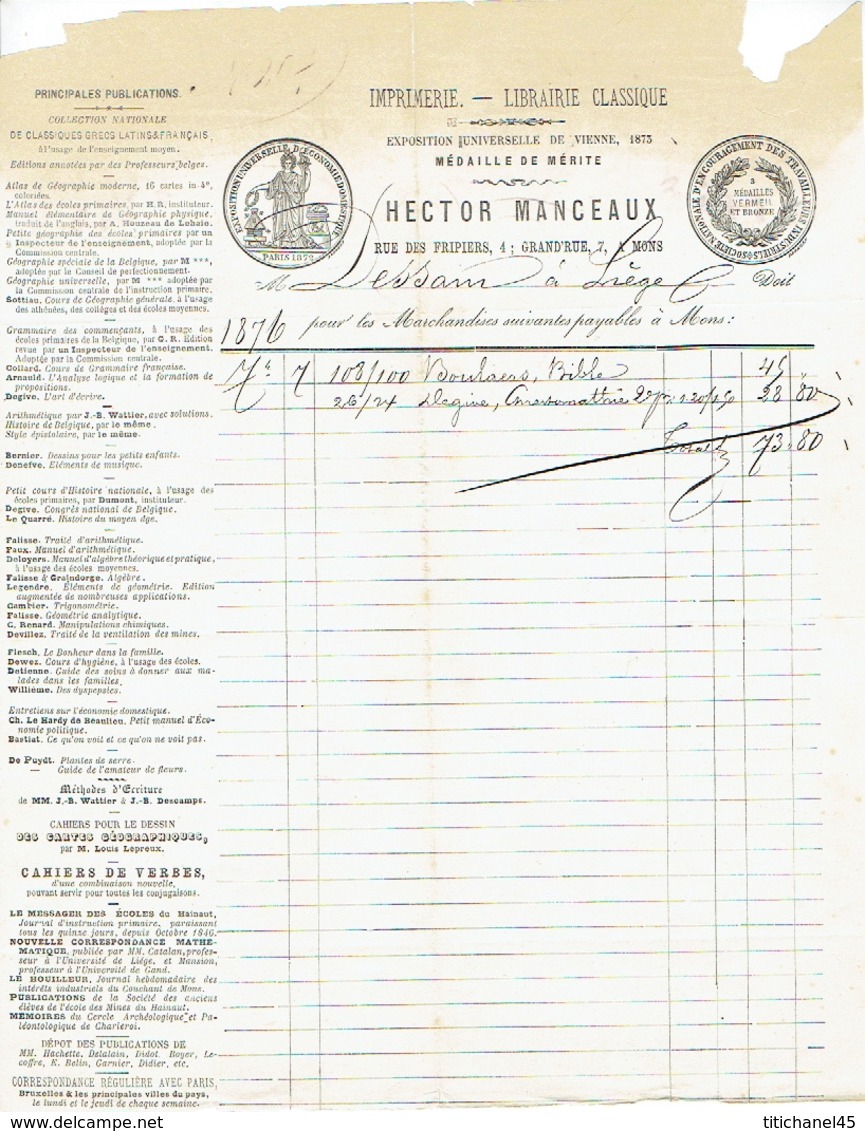 PRINCIPALES PUBLICATIONS.
COLLECTION NATIONALE
DE CLASSIQUES GRECS LATINS & FRANÇAIS,
à l'usage de l'enseignement moyen.
Editions annotées par des Professeurs belges.
Atlas de Géographie moderne, 16 cartes in-4°,
coloriées.
L'Atlas des écoles primaires, par H. R. instituteur.
Manuel élémentaire de Géographie physique,
traduit de l'anglais, par A. Houzeau de Lehaie.
Petite géographie des écoles primaires par un
Inspecteur de l'enseignement, adoptée par la
Commission centrale.
Géographie spéciale de la Belgique, par M ***,
adoptée par le Conseil de perfectionnement.
Géographie universelle, par M *** adoptée par
la Commission centrale de l'instruction primaire.
Sottiau. Cours de Géographie générale, à l'usage
des athénées, des collèges et des écoles moyennes.
Grammaire des commençants, à l'usage des
écoles primaires de la Belgique, par G. R. Edition
revue par un Inspecteur de l'enseignement.
Adoptée par la Commission centrale.
Collard. Cours de Grammaire française.
Arnauld. L'Analyse logique et la formation de
propositions.
Degive. L'art d'écrire.
Arithmétique par J.-B. Wattier, avec solutions.
Histoire de Belgique, par le même.
Style épistolaire, par le même.
Bernier. Dessins pour les petits enfants.
Denefve. Eléments de musique.
Petit cours d'Histoire nationale, à l'usage des
écoles primaires, par Dumont, instituteur.
Degive. Congrès national de Belgique.
Le Quarré. Histoire du moyen âge.
Falisse. Traité d'arithmétique.
Faux. Manuel d'arithmétique.
Deloyers. Manuel d'algèbre théorique et pratique,
à l'usage des écoles moyennes.
Falisse & Graindorge. Algèbre.
Legendre. Éléments de géométrie. Edition
augmentée de nombreuses applications.
Cambier. Trigonométrie.
Falisse. Géométrie analytique.
C. Renard. Manipulations chimiques.
Devillez. Traité de la ventilation des mines.
Flesch. Le Bonheur dans la famille.
Dewez. Cours d'hygiène, à l'usage des écoles.
Detienne. Guide des soins à donner aux ma-
lades dans les familles.
Willième. Des dyspepsies.
Entretiens sur l'économie domestique.
Ch. Le Hardy de Beaulieu. Petit manuel d'Éco-
nomie politique.
Bastiat. Ce qu'on voit et ce qu'on ne voit pas.
De Puydt. Plantes de serre.
— Guide de l'amateur de fleurs.
Méthodes d'Ecriture
de MM. J.-B. Wattier & J.-B. Descamps.
CAHIERS POUR LE DESSIN
DES CARTES GÉOGRAPHIQUES,
par M. Louis Lepreux.
CAHIERS DE VERBES,
d'une combinaison nouvelle,
pouvant servir pour toutes les conjugaisons.
LE MESSAGER DES ÉCOLES du Hainaut,
Journal d'instruction primaire, paraissant
tous les quinze jours, depuis Octobre 1846.
NOUVELLE CORRESPONDANCE MATHE-
MATIQUE, publiée par MM. Catalan, profes-
seur à l'Université de Liége, et Mansion,
professeur à l'Université de Gand.
LE HOUILLEUR, Journal hebdomadaire des
intérêts industriels du Couchant de Mons.
PUBLICATIONS de la Société des anciens
élèves de l'école des Mines du Hainaut.
MÉMOIRES du Cercle Archéologique et Pa-
léontologique de Charleroi.
DÉPOT DES PUBLICATIONS DE
MM. Hachette, Delalain, Didot, Boyer, Le-
coffre, E. Belin, Garnier, Didier, etc.
CORRESPONDANCE RÉGULIÈRE AVEC PARIS,
Bruxelles & les principales villes du pays,
le lundi et le jeudi de chaque semaine.
IMPRIMERIE. — LIBRAIRIE CLASSIQUE
EXPOSITION UNIVERSELLE DE VIENNE, 1873
MÉDAILLE DE MÉRITE
EXPOSITION UNIVERSELLE D'ÉCONOMIE DOMESTIQUE
PARIS 1872
SOCIÉTÉ NATIONALE D'ENCOURAGEMENT DES TRAVAILLEURS INDUSTRIELS
3
MÉDAILLES
VERMEIL
ET BRONZE
HECTOR MANCEAUX
RUE DES FRIPIERS, 4 ; GRAND'RUE, 7, A MONS
M Dessain à Liège Doit
1876 pour les Marchandises suivantes payables à Mons :
7 108/100 Boulaers, Bible 45 "
26/24 Degive, Chrestomathie 2e p. 1.20 28 80
Total 73.80
titichanel45